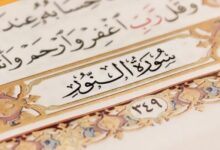 حِسَابُهُ عِندَ
وَقُل رَّبِّ ٱغۡفِرۡ وَٱرۡحَمۡ وَأَن
سُورَةُ النُّورِ
٣٤٩